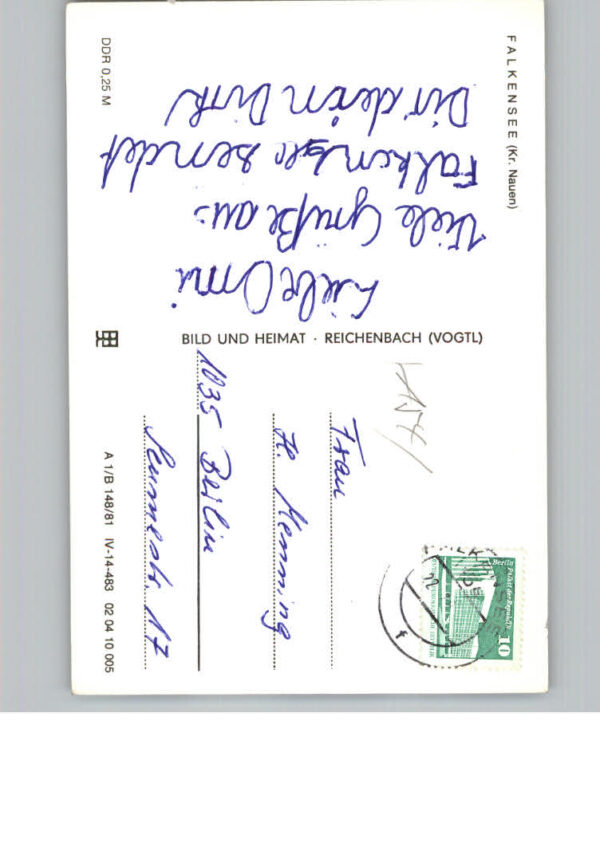 FALKENSEE (Kr. Nauen)
Liebe Omi
Viele Grüße aus
Falkensee sendet
Dir dein Dirk
DDR 0,25 M
BILD UND HEIMAT · REICHENBACH (VOGTL)
Frau
H. Memming
1035 Berlin
17
A 1/B 148/81 IV-14-483 02 04 10 005
Berlin Palast der Republik
10
DDR
FALKENSEE
f